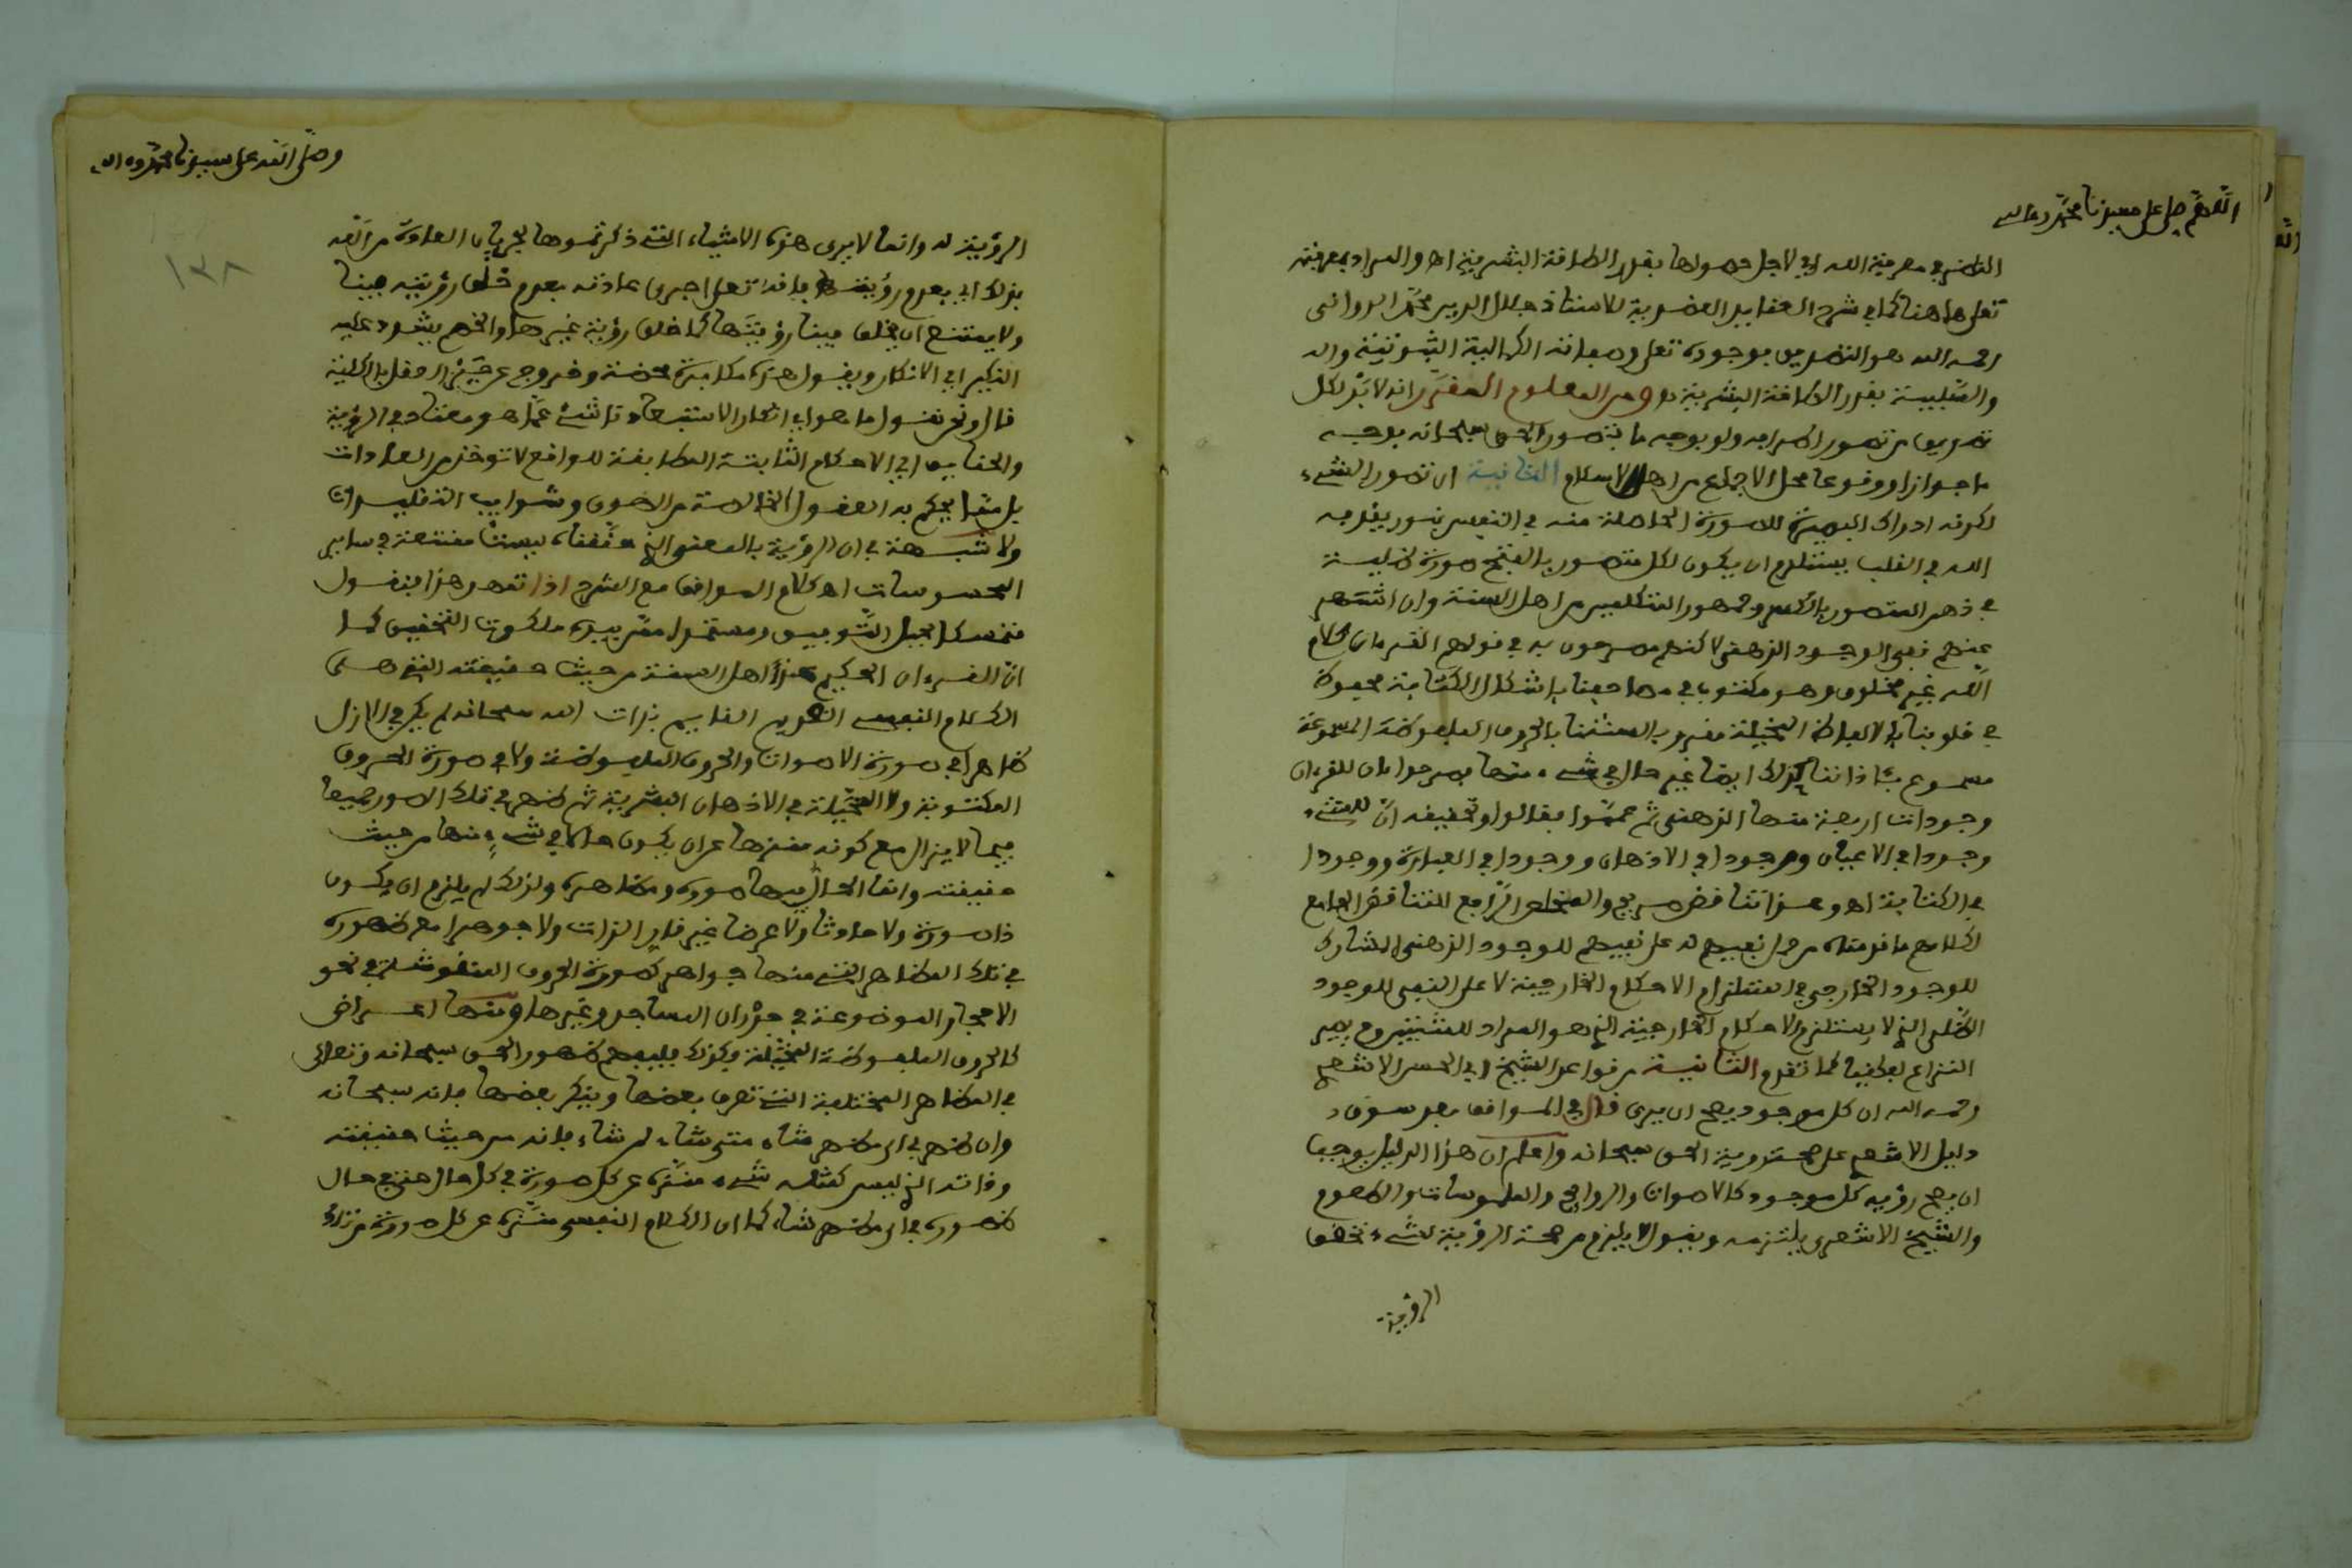 اللهم صل على سيدنا محمد وءاله
النظر في معرفة الله اي لاجل حصولها بقدر الطاقة البشرية اه والمراد بمعرفته
تعلى هاهنا كما في شرح العقايد العضدية للاستاذ جلال الدين محمد الدواني
رحمه الله هو التصديق بوجوده تعلى وصفاته الكمالية الثبوتية
والسلبية بقدر الطاقة البشرية ومن المعلوم المقرر انه لا بد لكل
تصديق من تصور اطرافه ولو بوجه ما فتصور الحق سبحانه بوجه
ما جوازا ووقوعا محل الاجماع من اهل الاسلام الثانية ان تصور الشيء
لكونه ادراك البصيرة للصورة الحاصلة منه في النفس بنور يقذفه
الله في القلب يستلزم ان يكون لكل متصور بالفتح صورة ظلية
في ذهن المتصور بالكسر وجمهور المتكلمين من اهل السنة وان اشتهر
عنهم نفي الوجود الذهني لاكنهم مصرحون به في قولهم القرءان كلام
الله غير مخلوق وهو مكتوب في مصاحفنا باشكال الكتابة محفوظ
في قلوبنا بالالفاظ المخيلة مقروء بالسنتنا بالحروف الملفوظة المسموعة
مسموع بئاذاننا كذلك ايضا غير حال في شيء منها فصرحوا بان للقرءان
وجودات اربعة منها الذهني ثم عمموا فقالوا وتحقيقه ان للشيء
وجودا في الاعيان ووجودا في الاذهان ووجودا في العبارة ووجودا
في الكتابة اه وهذا تناقض صريح والمخلص الرافع للتناقض الجامع
لكلامهم ما قدمناه من حمل نفيهم له على نفيهم للوجود الذهني المشارك
للوجود الخارجي في استلزام الاحكام الخارجية لا على النفي للوجود
الظلي الذي لا يستلزم الاحكام الخارجية الذي هو المراد للمثبتين فيصير
النزاع لفظيا كما تقدم الثانية من قواعد الشيخ ابي الحسن الاشعري
رحمه الله ان كل موجود يصح ان يرى قال في المواقف بعد سوق
دليل الاشعري على صحة رؤية الحق سبحانه واعلم ان هذا الدليل يوجب
ان يصح رؤية كل موجود كالاصوات والروايح والملموسات والطعوم
والشيخ الاشعري يلتزمه ويقول لا يلزم من صحة الرؤية لشيء تحقق
الرؤية
وصلى الله على سيدنا محمد وءاله
١٣٨
الرؤية له وانما لا يرى هذه الاشياء التي ذكرتموها لجريان العادة من الله
بذلك اي بعدم رؤيتها فانه تعلى اجرى عادته بعدم خلق رؤيتها فينا
ولا يمتنع ان يخلق فينا رؤيتها كما خلق رؤية غيرها والخصم يشدد عليه
النكير اي الانكار ويقول هذه مكابرة محضة وخروج عن حيز العقل بالكلية
قال ونحن نقول ما هو اي انكار الا استبعاد ناشئ عما هو معتاد في الرؤية
والحقايق اي الاحكام الثابتة المطابقة للواقع لا توخذ من العادات
بل مما يحكم به العقول الخالصة من الهوى وشوايب التقليدات
ولا شبهة في ان الرؤية بالمعنى الذي حققناه ليست ممتنعة في ساير
المحسوسات اه كلام المواقف مع الشرح اذا تمهد هذا فنقول
متمسكا بحبل التوفيق ومستمدا ممن بيده ملكوت التحقيق كما
ان القرءان الحكيم عند اهل السنة من حيث حقيقته التي هي
الكلام النفسي القديم القايم بذات الله سبحانه لم يكن في الازل
ظاهرا في صورة الاصوات والحروف الملفوظة ولا في صورة الحروف
المكتوبة ولا المخيلة في الاذهان البشرية ثم ظهر في تلك الصور جميعا
فيما لا يزال مع كونه منزها عن ان يكون حالا في شيء منها من حيث
حقيقته وانما الحال فيها صوره ومظاهره ولذلك لم يلزم ان يكون
ذا صورة ولا حادثا ولا عرضا غير قار الذات ولا جوهرا مع ظهوره
في تلك المظاهر التي منها جواهر كصورة الحروف المنقوشة في نحو
الاحجار الموضوعة في جدران المساجد وغيرها ومنها اعراض
كالحروف الملفوظة المخيلة وكذلك فليفهم ظهور الحق سبحانه وتعالى
في المظاهر المختلفة التي تعرف بعضها وينكر بعضها فانه سبحانه
وان ظهر في اي مظهر شاء متى شاء لمن شاء فانه من حيث حقيقته
وذاته الذي ليس كمثله شيء منزه عن كل صورة في كل حال حتى في حال
ظهوره في اي مظهر شاء كما ان الكلام النفسي منزه عن كل صورة من تلك